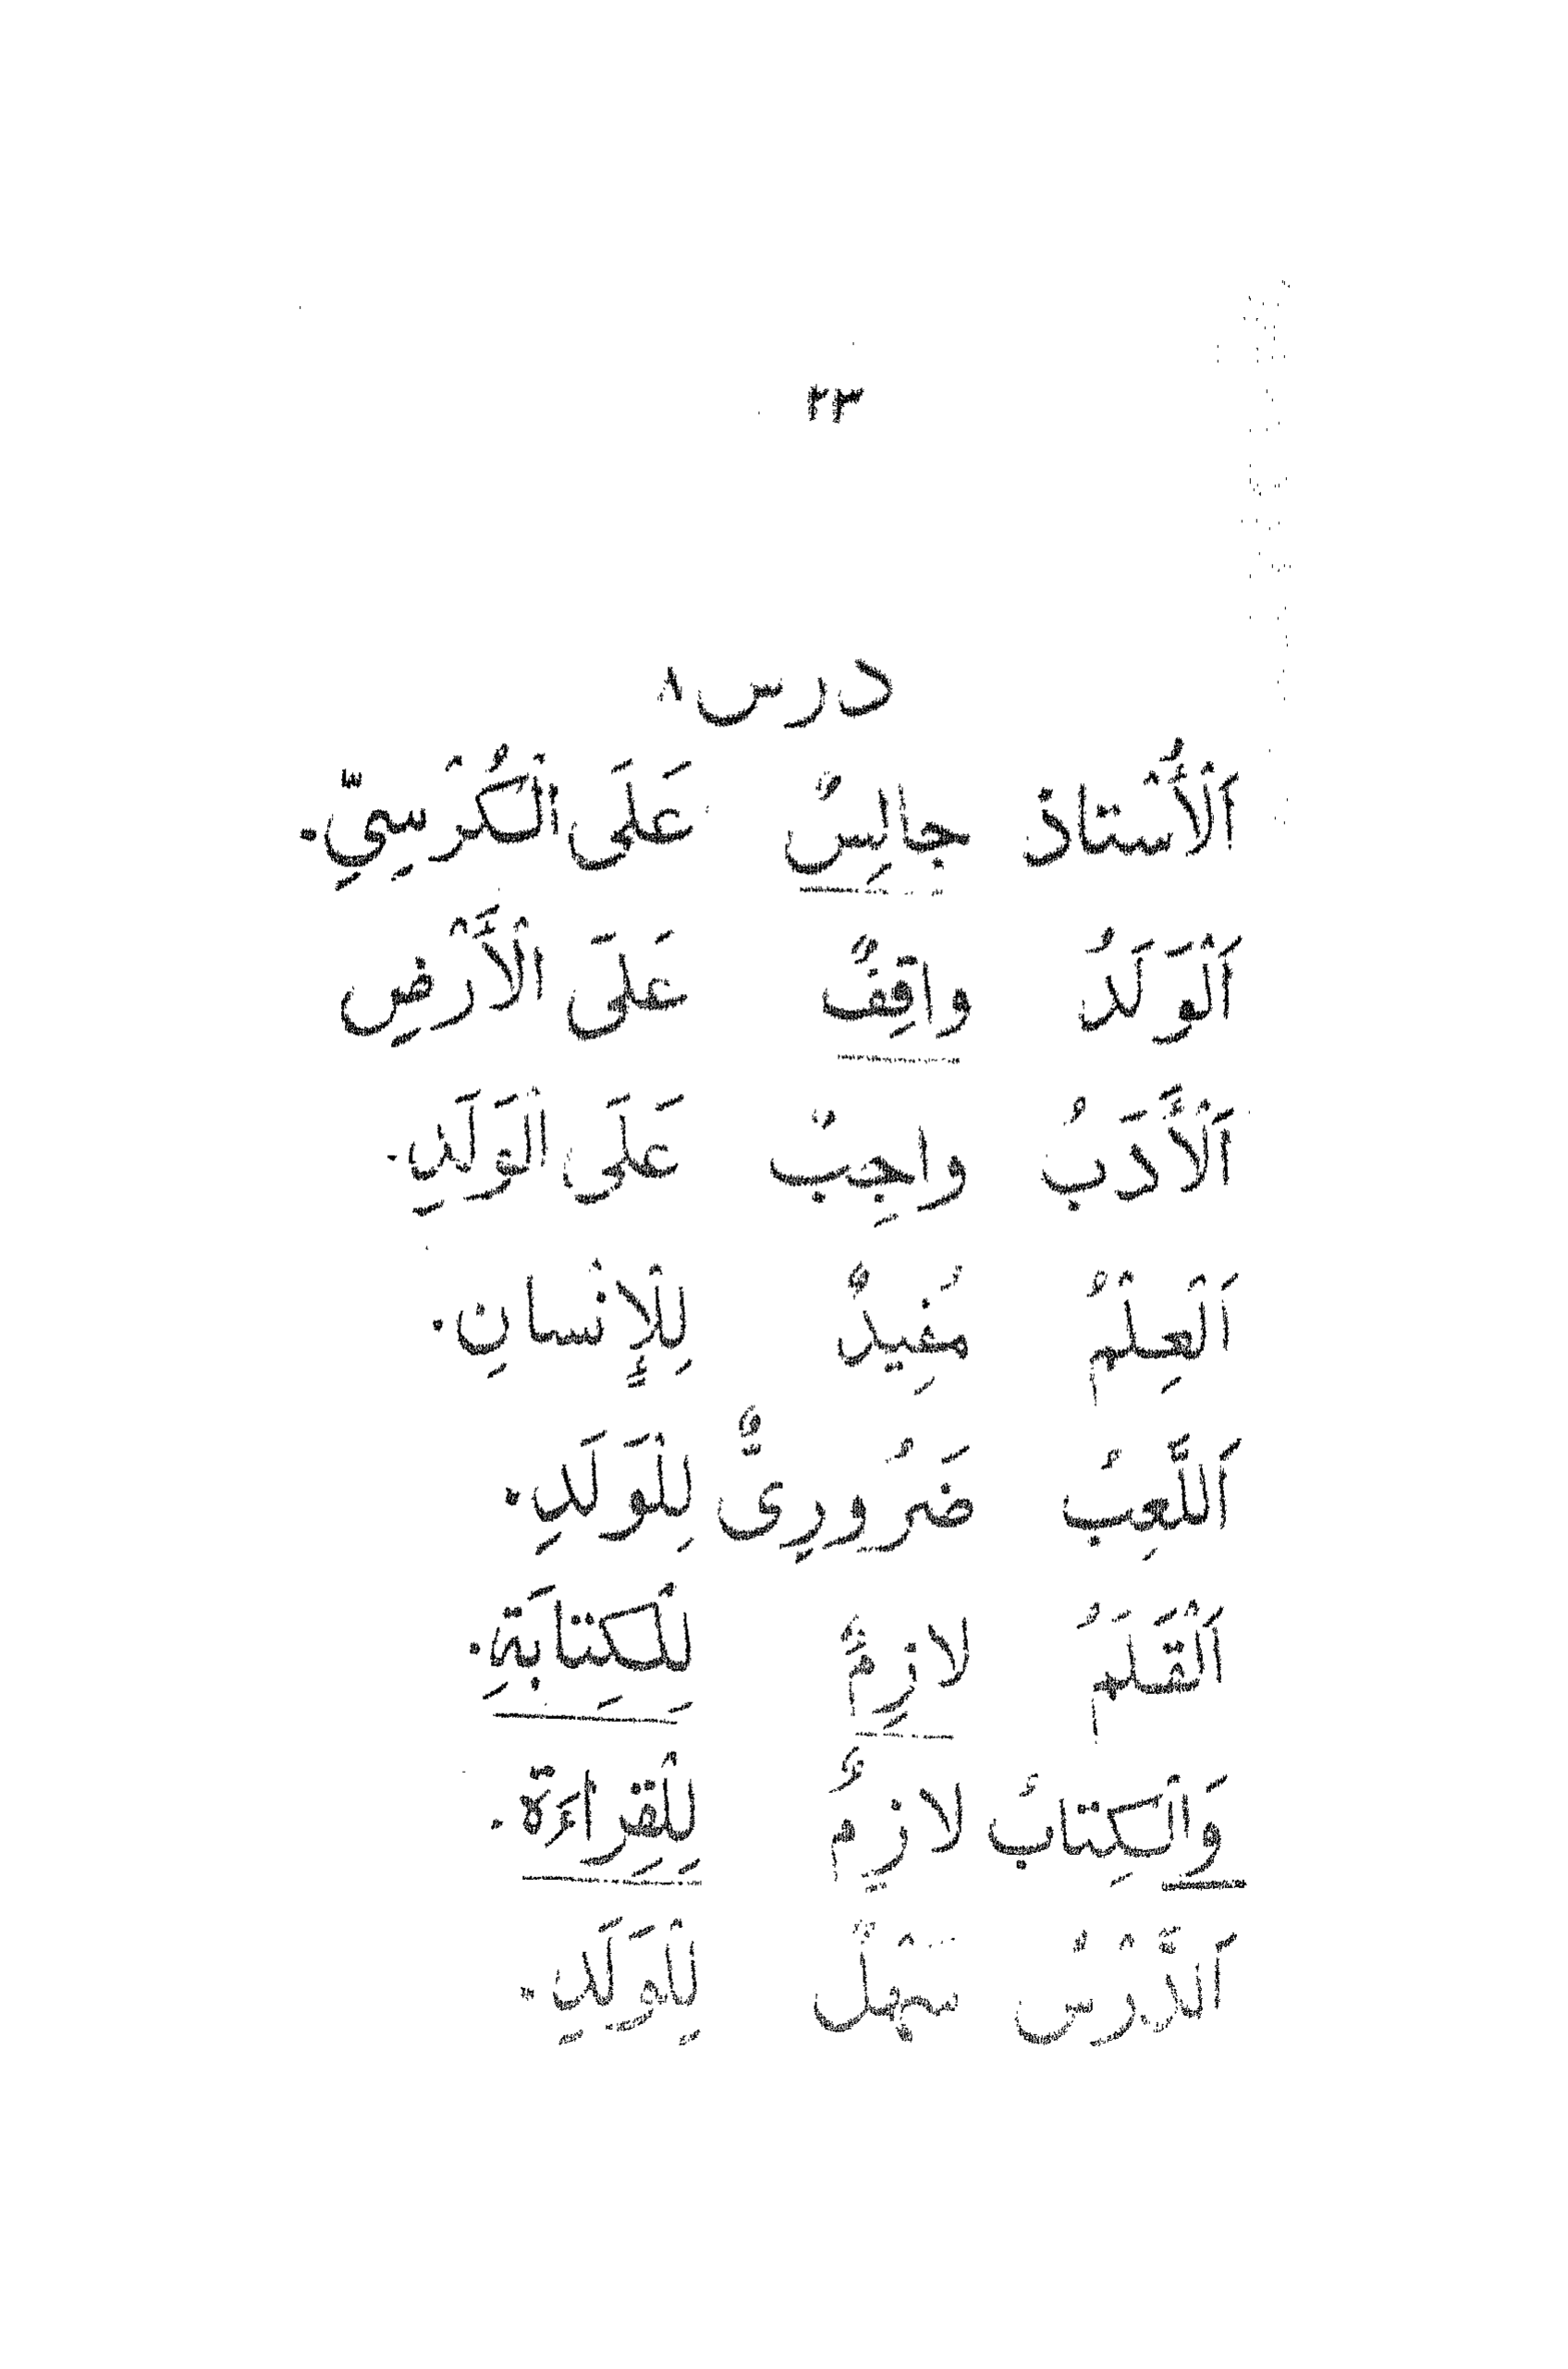 ٢٣
درس ٨
اَلْأُسْتاذ جالِسٌ عَلَى الْكُرْسِيِّ.
اَلْوَلَدُ واقِفٌ عَلَى الْأَرْضِ
اَلْأَدَبُ واجِبٌ عَلَى الْوَلَدِ.
اَلْعِلْمُ مُفِيدٌ لِلْإِنْسانِ.
اَللَّعِبُ ضَرُورِىٌّ لِلْوَلَدِ.
اَلْقَلَمُ لازِمٌ لِلْكِتابَةِ.
وَالْكِتابُ لازِمٌ لِلْقِراءَة.
اَلدَّرْسُ سَهْلٌ لِلْوَلَدِ.